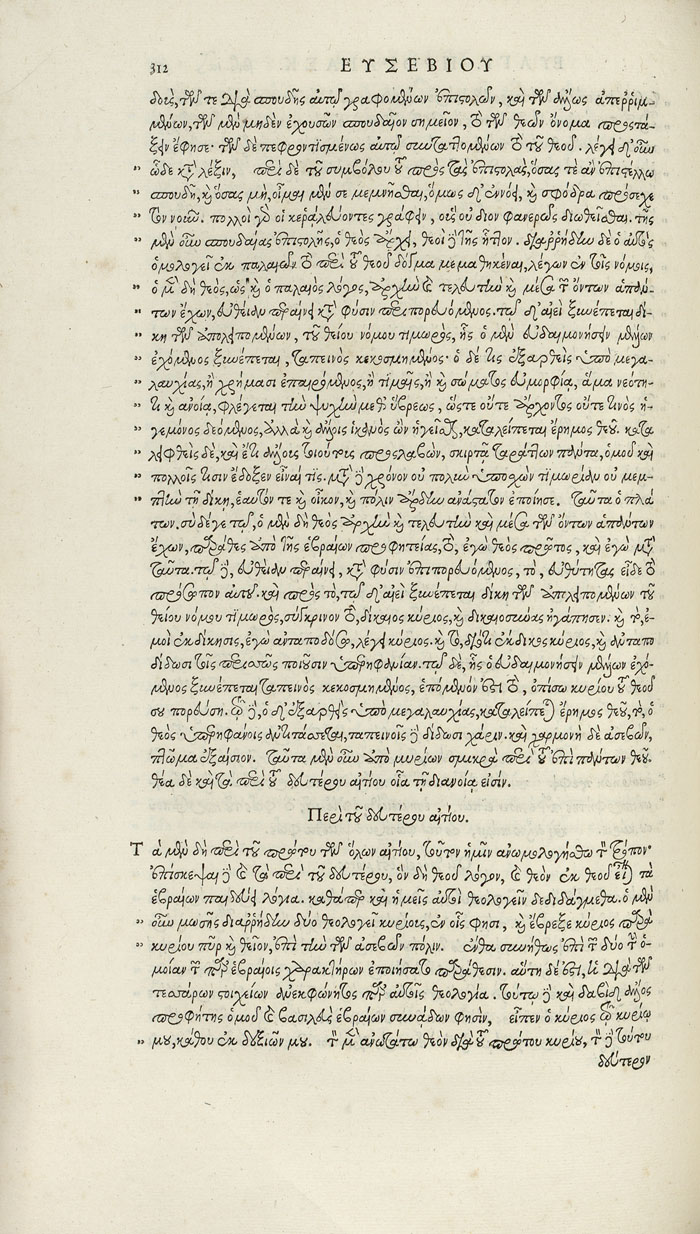 312 ΕΥΣΕΒΙΟΥ
δοις, τῶν τε διὰ σπουδῆς αὐτῷ γραφομένων ἐπιστολῶν, καὶ τῶν ἄλλως ἀπερριμ-
μένων, τῶν μὲν μηδὲν ἐχουσῶν σπουδαῖον σημεῖον, τὸ τῶν θεῶν ὄνομα προστά-
ξειν ἔφησε· τῶν δὲ πεφροντισμένως αὐτῷ συνταττομένων τὸ τοῦ θεοῦ. λέγει δ' οὖν
" ὧδε κατὰ λέξιν, περὶ δὲ τοῦ συμβόλου τοῦ πρὸς τὰς ἐπιστολὰς, ὅσας τε ἂν ἐπιστέλλω
" σπουδῇ, καὶ ὅσας μὴ, οἶμαι μέν σε μεμνῆσθαι, ὅμως δ' ἐννόει, καὶ σφόδρα πρόσεχε
" τὸν νοῦν. πολλοὶ γὰρ οἱ κελεύοντες γράφειν, οὓς οὐ ῥᾴδιον φανερῶς διωθεῖσθαι. τῆς
" μὲν οὖν σπουδαίας ἐπιστολῆς, ὁ θεὸς ἄρχει, θεοὶ δὲ τῆς ἧττον. διαρρήδην δὲ ὁ αὐτὸς
ὁμολογεῖ ἐκ παλαιῶν τὸ περὶ τοῦ θεοῦ δόγμα μεμαθηκέναι, λέγων ἐν τοῖς νόμοις,
" ὁ μὲν δὴ θεὸς, ὡς καὶ ὁ παλαιὸς λόγος, ἀρχὴν καὶ τελευτὴν καὶ μέσα τῶν ὄντων ἁπάν-
" των ἔχων, εὐθεῖαν περαίνει κατὰ φύσιν περιπορευόμενος. τῷ δ' αἰεὶ ξυνέπεται δί-
" κη τῶν ἀπολειπομένων, τοῦ θείου νόμου τιμωρὸς, ἧς ὁ μὲν εὐδαιμονήσειν μέλλων
" ἐχόμενος ξυνέπεται, ταπεινὸς κεκοσμημένος· ὁ δέ τις ἐξαρθεὶς ὑπὸ μεγα-
" λαυχίας, ἢ χρήμασι ἐπαιρόμενος, ἢ τιμαῖς, ἢ καὶ σώματος εὐμορφίᾳ, ἅμα νεότη-
" τι καὶ ἀνοίᾳ, φλέγεται τὴν ψυχὴν μεθ' ὕβρεως, ὥστε οὔτε ἄρχοντος οὔτε τινὸς ἡ-
" γεμόνος δεόμενος, ἀλλὰ καὶ ἄλλοις ἱκανὸς ὢν ἡγεῖσθαι, καταλείπεται ἔρημος θεοῦ. κατα
" λειφθεὶς δὲ, καὶ ἔτι ἄλλους τοιούτους προσλαβὼν, σκιρτᾷ ταράττων πάντα, ὁμοῦ καὶ
" πολλοῖς τισιν ἔδοξεν εἶναί τις. μετὰ δὲ χρόνον οὐ πολὺν ὑποσχὼν τιμωρίαν οὐ μεμ-
" πτὴν τῇ δίκῃ, ἑαυτόν τε καὶ οἶκον, καὶ πόλιν ἄρδην ἀνάστατον ἐποίησε. ταῦτα ὁ πλά
των. σὺ δέ γε τῷ, ὁ μὲν δὴ θεὸς ἀρχὴν καὶ τελευτὴν καὶ μέσα τῶν ὄντων ἁπάντων
ἔχων, παράθες ἀπὸ τῆς ἑβραίων προφητείας, τὸ, ἐγὼ θεὸς πρῶτος, καὶ ἐγὼ μετὰ
ταῦτα. τῷ δὲ, εὐθεῖαν περαίνει, κατὰ φύσιν ἐπιπορευόμενος, τὸ, εὐθύτητας εἶδε τὸ
πρόσωπον αὐτοῦ. καὶ πρὸς τὸ, τῷ δ' αἰεὶ ξυνέπεται δίκη τῶν ἀπολειπομένων τοῦ
θείου νόμου τιμωρὸς, σύγκρινον τὸ, δίκαιος κύριος, καὶ δικαιοσύνας ἠγάπησεν. καὶ τὸ, ἐ-
μοὶ ἐκδίκησις, ἐγὼ ανταποδώσω, λέγει κύριος. καὶ τὸ, διότι ἔκδικος κύριος, καὶ ἀνταπο
δίδωσι τοῖς περισσῶς ποιοῦσιν ὑπερηφανίαν. τῷ δὲ, ἧς ὁ εὐδαιμονήσειν μέλλων ἐχό-
μενος ξυνέπεται ταπεινὸς κεκοσμημένος, ἑπόμενόν ἐστι τὸ, ὀπίσω κυρίου τοῦ θεοῦ
σου πορεύσῃ. τῷ δὲ, ὁ δ' ἐξαρθεὶς ὑπὸ μεγαλαυχίας, καταλείπεται ἔρημος θεοῦ, τὸ, ὁ
θεὸς ὑπερηφάνοις ἀντιτάσσεται, ταπεινοῖς δὲ δίδωσι χάριν. καὶ χαρμονὴ δὲ ἀσεβῶν,
πτῶμα ἐξαίσιον. ταῦτα μὲν οὖν ἀπὸ μυρίων σμικρὰ περὶ τοῦ ἐπὶ πάντων θεοῦ.
θέα δὲ καὶ τὰ περὶ τοῦ δευτέρου αἰτίου οἷα τῇ διανοίᾳ εἰσίν.
Περὶ τοῦ δευτέρου αἰτίου.
Τὰ μὲν δὴ περὶ τοῦ πρώτου τῶν ὅλων αἰτίου, τοῦτον ἡμῖν ἀνωμολογήσθω τὸν τρόπον·
ἐπίσκεψαι δὲ καὶ τὰ περὶ τοῦ δευτέρου, ὃν δὴ θεοῦ λόγον, καὶ θεὸν ἐκ θεοῦ εἶναι τὰ
ἑβραίων παιδεύει λόγια. καθάπερ καὶ ἡμεῖς αὐτοὶ θεολογεῖν δεδιδάγμεθα. ὁ μὲν
" οὖν μωσῆς διαρρήδην δύο θεολογεῖ κυρίους, ἐν οἷς φησι, καὶ ἔβρεξε κύριος παρὰ
" κυρίου πῦρ καὶ θεῖον, ἐπὶ τὴν τῶν ἀσεβῶν πόλιν. ἔνθα συνήθως ἐπὶ τῶν δύο τὴν ὁ-
μοίαν τῶν παρ' ἑβραίοις χαρακτήρων ἐποιήσατο παράθεσιν. αὕτη δέ ἐστιν, ἡ διὰ τῶν
τεσσάρων στοιχείων ἀνεκφώνητος παρ' αὐτοῖς θεολογία. τούτῳ δὲ καὶ δαβὶδ ἄλλος
προφήτης ὁμοῦ καὶ βασιλεὺς ἑβραίων συνᾴδων φησὶν, εἶπεν ὁ κύριος τῷ κυρίῳ
" μου, κάθου ἐκ δεξιῶν μου. τὸν μὲν ἀνωτάτω θεὸν διὰ τοῦ πρώτου κυρίου, τὸν δὲ τούτου
δεύτερον